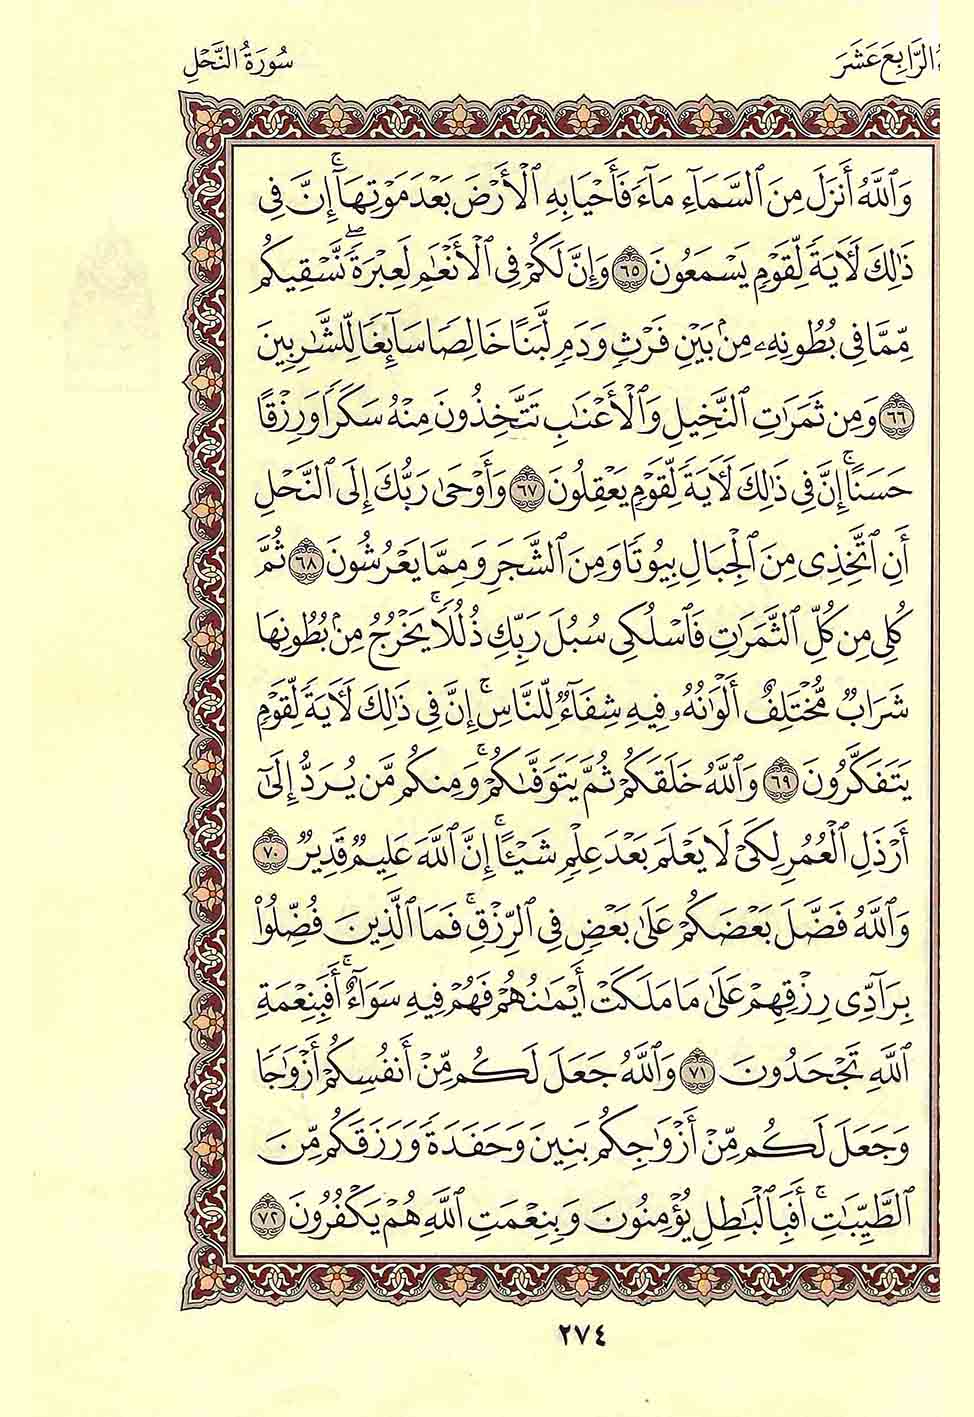 ءُ الرَّابِعَ عَشَرَ
سُورَةُ النَّحْلِ
وَٱللَّهُ أَنزَلَ مِنَ ٱلسَّمَآءِ مَآءً فَأَحْيَا بِهِ ٱلْأَرْضَ بَعْدَ مَوْتِهَآ ۚ إِنَّ فِى
ذَٰلِكَ لَـَٔايَةً لِّقَوْمٍ يَسْمَعُونَ ٦٥ وَإِنَّ لَكُمْ فِى ٱلْأَنْعَٰمِ لَعِبْرَةً ۖ نُّسْقِيكُم
مِّمَّا فِى بُطُونِهِۦ مِنۢ بَيْنِ فَرْثٍ وَدَمٍ لَّبَنًا خَالِصًا سَآئِغًا لِّلشَّٰرِبِينَ
٦٦ وَمِن ثَمَرَٰتِ ٱلنَّخِيلِ وَٱلْأَعْنَٰبِ تَتَّخِذُونَ مِنْهُ سَكَرًا وَرِزْقًا
حَسَنًا ۗ إِنَّ فِى ذَٰلِكَ لَـَٔايَةً لِّقَوْمٍ يَعْقِلُونَ ٦٧ وَأَوْحَىٰ رَبُّكَ إِلَى ٱلنَّحْلِ
أَنِ ٱتَّخِذِى مِنَ ٱلْجِبَالِ بُيُوتًا وَمِنَ ٱلشَّجَرِ وَمِمَّا يَعْرِشُونَ ٦٨ ثُمَّ
كُلِى مِن كُلِّ ٱلثَّمَرَٰتِ فَٱسْلُكِى سُبُلَ رَبِّكِ ذُلُلًا ۚ يَخْرُجُ مِنۢ بُطُونِهَا
شَرَابٌ مُّخْتَلِفٌ أَلْوَٰنُهُۥ فِيهِ شِفَآءٌ لِّلنَّاسِ ۗ إِنَّ فِى ذَٰلِكَ لَـَٔايَةً لِّقَوْمٍ
يَتَفَكَّرُونَ ٦٩ وَٱللَّهُ خَلَقَكُمْ ثُمَّ يَتَوَفَّىٰكُمْ ۚ وَمِنكُم مَّن يُرَدُّ إِلَىٰٓ
أَرْذَلِ ٱلْعُمُرِ لِكَىْ لَا يَعْلَمَ بَعْدَ عِلْمٍ شَيْـًٔا ۚ إِنَّ ٱللَّهَ عَلِيمٌ قَدِيرٌ ٧٠
وَٱللَّهُ فَضَّلَ بَعْضَكُمْ عَلَىٰ بَعْضٍ فِى ٱلرِّزْقِ ۚ فَمَا ٱلَّذِينَ فُضِّلُوا۟
بِرَآدِّى رِزْقِهِمْ عَلَىٰ مَا مَلَكَتْ أَيْمَٰنُهُمْ فَهُمْ فِيهِ سَوَآءٌ ۚ أَفَبِنِعْمَةِ
ٱللَّهِ تَجْحَدُونَ ٧١ وَٱللَّهُ جَعَلَ لَكُم مِّنْ أَنفُسِكُمْ أَزْوَٰجًا
وَجَعَلَ لَكُم مِّنْ أَزْوَٰجِكُم بَنِينَ وَحَفَدَةً وَرَزَقَكُم مِّنَ
ٱلطَّيِّبَٰتِ ۚ أَفَبِٱلْبَٰطِلِ يُؤْمِنُونَ وَبِنِعْمَتِ ٱللَّهِ هُمْ يَكْفُرُونَ ٧٢
٢٧٤